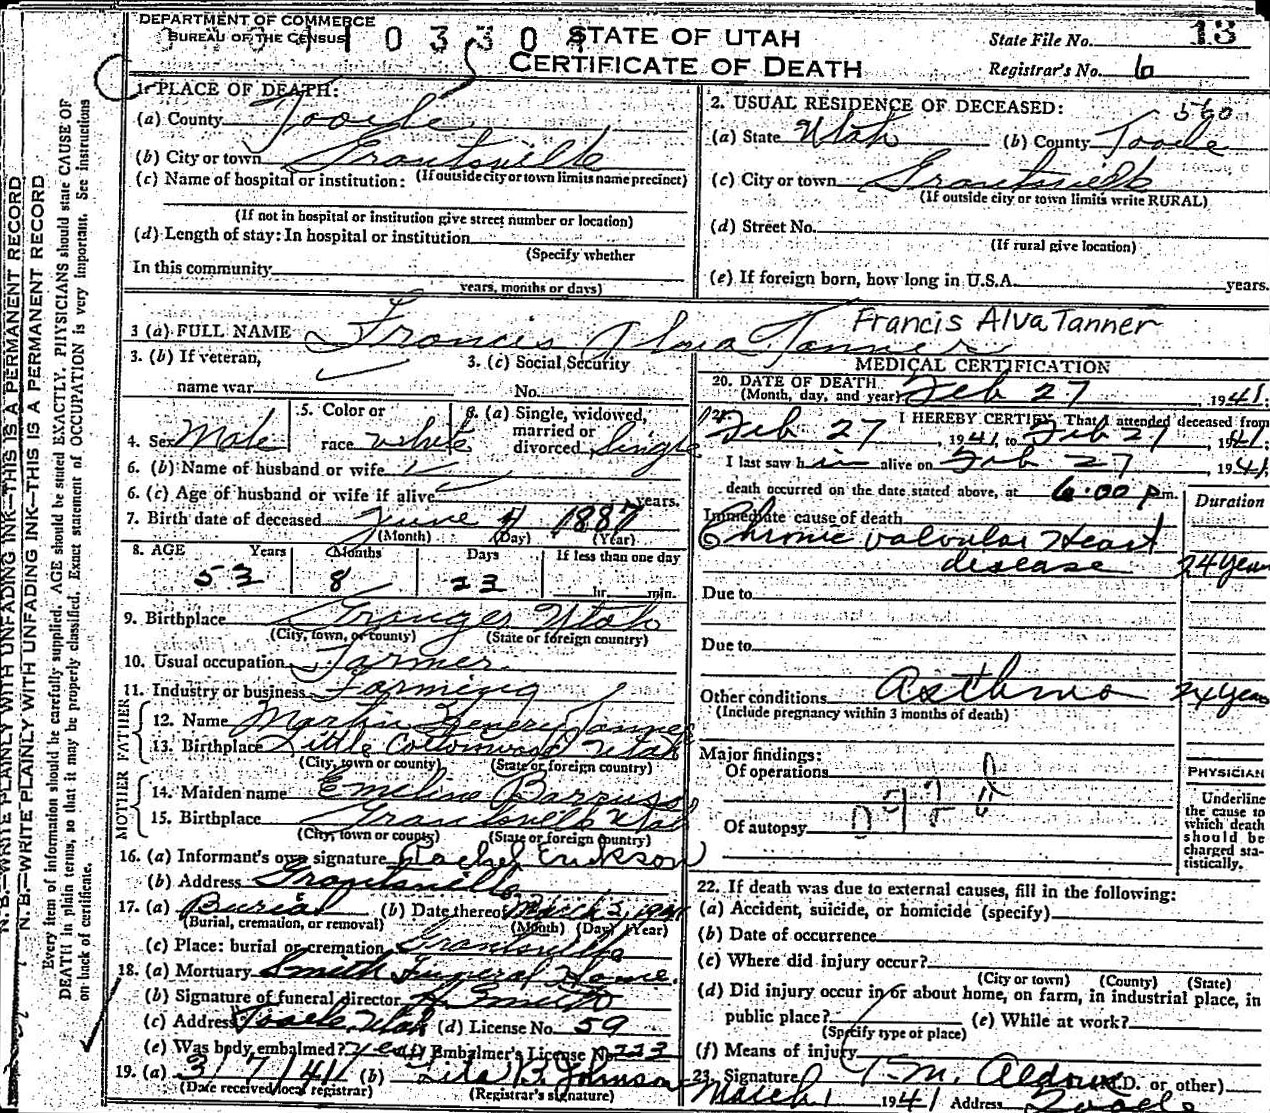 DEPARTMENT OF COMMERCE
BUREAU OF THE CENSUS
STATE OF UTAH
CERTIFICATE OF DEATH
State File No. 13
Registrar's No. 6
1. PLACE OF DEATH:
(a) County Tooele
(b) City or town Grantsville
(If outside city or town limits name precinct)
(c) Name of hospital or institution:
(If not in hospital or institution give street number or location)
(d) Length of stay: In hospital or institution
(Specify whether
In this community
years, months or days)
2. USUAL RESIDENCE OF DECEASED: 560
(a) State Utah (b) County Tooele
(c) City or town Grantsville
(If outside city or town limits write RURAL)
(d) Street No.
(If rural give location)
(e) If foreign born, how long in U.S.A. years.
3 (a) FULL NAME Francis Alva Tanner Francis Alva Tanner
3. (b) If veteran, name war
3. (c) Social Security No.
4. Sex Male
5. Color or race white
6. (a) Single, widowed, married or divorced Single
6. (b) Name of husband or wife
6. (c) Age of husband or wife if alive years.
7. Birth date of deceased June 4 1887
(Month) (Day) (Year)
8. AGE Years Months Days If less than one day
53 8 23 hr. min.
9. Birthplace Granger Utah
(City, town, or county) (State or foreign country)
10. Usual occupation Farmer
11. Industry or business Farming
FATHER
12. Name Martin Henery Tanner
13. Birthplace Little Cottonwood Utah
(City, town or county) (State or foreign country)
MOTHER
14. Maiden name Emeline Barrus
15. Birthplace Grantsville Utah
(City, town or county) (State or foreign country)
16. (a) Informant's own signature Rachel Erickson
(b) Address Grantsville
17. (a) Burial (b) Date thereof March 2, 1941
(Burial, cremation, or removal) (Month) (Day) (Year)
(c) Place: burial or cremation Grantsville
18. (a) Mortuary Smith Funeral Home.
(b) Signature of funeral director Smith
(c) Address Tooele Utah (d) License No. 59
(e) Was body embalmed? yes (f) Embalmer's License No. 223
19. (a) 3/7/41 (b) Johnson
(Date received local registrar) (Registrar's signature)
MEDICAL CERTIFICATION
20. DATE OF DEATH Feb 27, 1941.
(Month, day, and year)
I HEREBY CERTIFY, That I attended deceased from
Feb 27, 1941, to Feb 27, 1941.
I last saw him alive on Feb 27, 1941
death occurred on the date stated above, at 6:00 pm.
Duration
Immediate cause of death
Chronic valvular Heart
disease 24 years
Due to
Due to
Other conditions Asthma 24 years
(Include pregnancy within 3 months of death)
Major findings:
Of operations
Of autopsy
PHYSICIAN
Underline
the cause to
which death
should be
charged sta-
tistically.
22. If death was due to external causes, fill in the following:
(a) Accident, suicide, or homicide (specify)
(b) Date of occurrence
(c) Where did injury occur?
(City or town) (County) (State)
(d) Did injury occur in or about home, on farm, in industrial place, in
public place? (e) While at work?
(Specify type of place)
(f) Means of injury
23. Signature T.M. (M.D. or other)
March 1 1941 Address Tooele
N. B.—WRITE PLAINLY WITH UNFADING INK—THIS IS A PERMANENT RECORD
N. B.—WRITE PLAINLY WITH UNFADING INK—THIS IS A PERMANENT RECORD
Every item of information should be carefully supplied. AGE should be stated EXACTLY. PHYSICIANS should state CAUSE OF
DEATH in plain terms, so that it may be properly classified. Exact statement of OCCUPATION is very important. See instructions
on back of certificate.